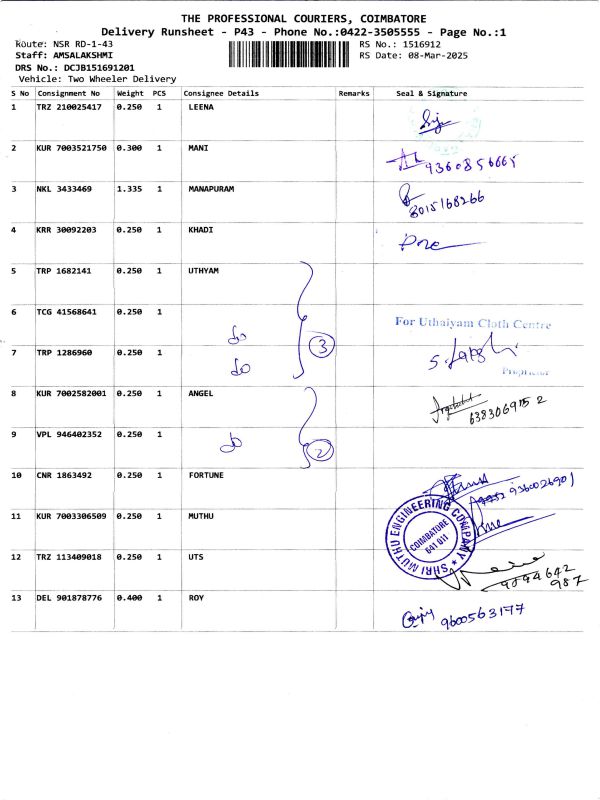 THE PROFESSIONAL COURIERS, COIMBATORE
Delivery Runsheet - P43 - Phone No.:0422-3505555 - Page No.:1
Route: NSR RD-1-43
RS No.: 1516912
Staff: AMSALAKSHMI
RS Date: 08-Mar-2025
DRS No.: DCJB151691201
Vehicle: Two Wheeler Delivery
S No Consignment No Weight PCS Consignee Details Remarks Seal & Signature
1 TRZ 210025417 0.250 1 LEENA
2 KUR 7003521750 0.300 1 MANI
9360856665
3 NKL 3433469 1.335 1 MANAPURAM
8015168266
4 KRR 30092203 0.250 1 KHADI
5 TRP 1682141 0.250 1 UTHYAM
6 TCG 41568641 0.250 1 do
For Uthaiyam Cloth Centre
7 TRP 1286960 0.250 1 do 3
Proprietor
8 KUR 7002582001 0.250 1 ANGEL
6383069152
9 VPL 946402352 0.250 1 do 2
10 CNR 1863492 0.250 1 FORTUNE
9360026901
11 KUR 7003306509 0.250 1 MUTHU
SHRI MUTHU ENGINEERING COMPANY
COIMBATORE
641 011
12 TRZ 113409018 0.250 1 UTS
9094642
987
13 DEL 901878776 0.400 1 ROY
9600563177